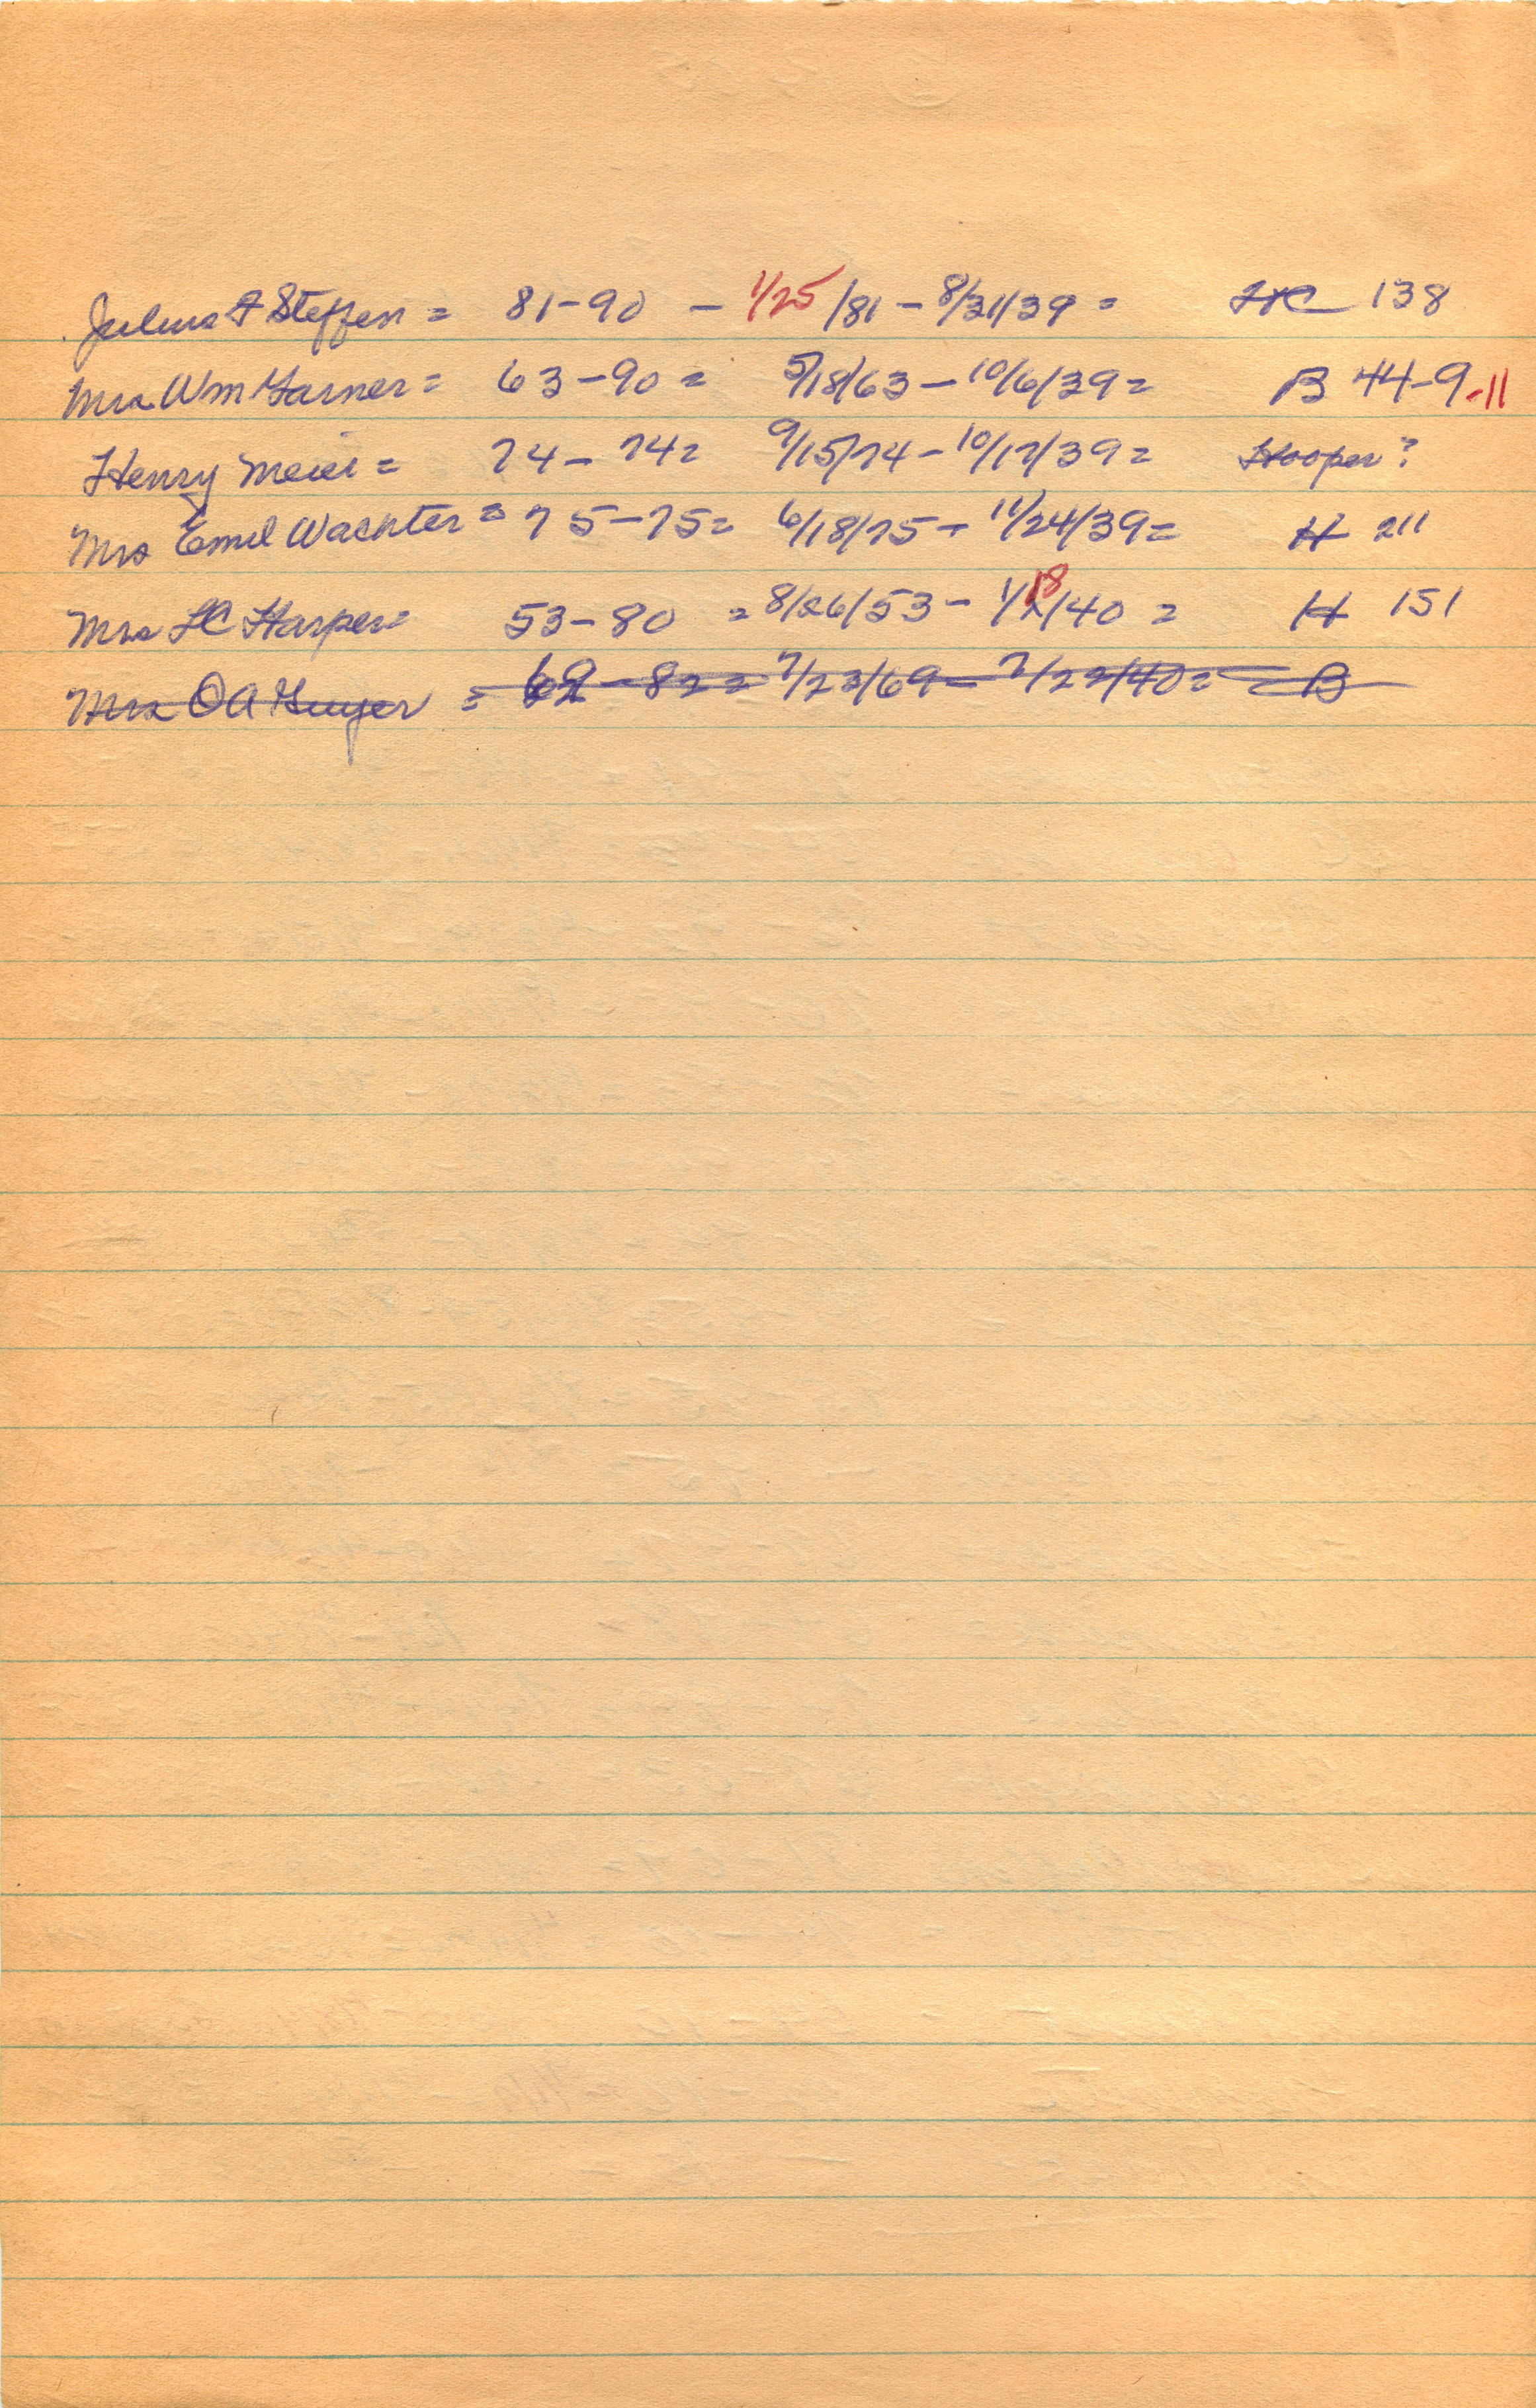 Julius F Steffen = 81-90 - 1/25/81 - 8/31/39 = HC 138
Mrs Wm Garner = 63-90 = 5/18/63 - 10/6/39 = B 44-9-11
Henry Meier = 74-74 = 9/15/74 - 10/17/39 = Hooper?
Mrs Emil Wachter = 75-75 = 6/18/75 - 11/24/39 = H 211
Mrs FC Harper = 53-80 = 8/26/53 - 1/18/40 = H 151
Mrs OA Guyer = 69-82 = 7/23/69 - 7/22/40 = B